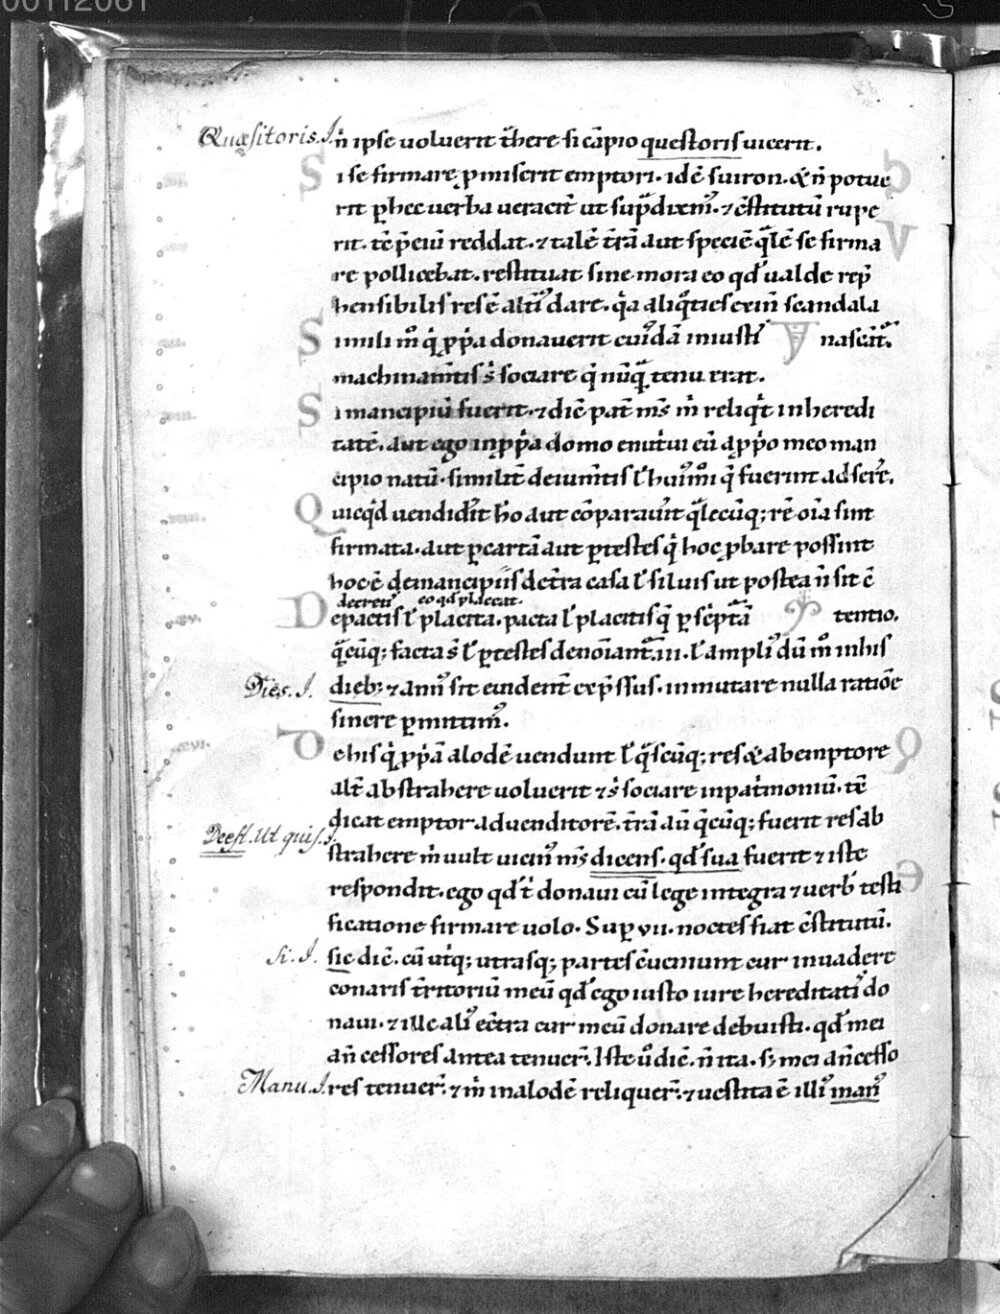 00112061
Quæsitoris. J. n̄ ipse uoluerit t̄here si cāpio questoris uicerit.
S i se firmare p̱miserit emptori. idē suiron. & n̄ potue
rit p̱ hec uerba ueracit̄ ut sup̄dixim᷒. ⁊ c̄stitutū rupe
rit. reddat. ⁊ talē t̄rā aut speciē q̄lē se firma
re pollicebat. restituat sine mora eo qd̄ ualde rep̄
hensibilis res ē dare. q̄a scandala
S imili m̊ q̇ p̱p̱a donauerit cuīdā iniusti nascūt᷒.
sociare q̇ nūq̄ tenuerat.
S i mancipiū fuerit. ⁊ diē pat̄ m̄s ṁ reliq̇t in heredi
tatē. aut ego in p̱ṗa domo enuṫui eū a p̱ṗo meo man
cipio natū. similit̄ de iumt̄is l̄ q̇ fuerint adserē.
Q uicq̇d uendidit̄ h̊o aut cōparauit̄ q̄lecūq; rē oīa sint
firmata. aut p̱ cartā aut p̱ testes q̇ hoc p̱bare possint
hoc ē de mancipiis de t̄rra casa l̄ siluis ut postea n̄ sit c̄
decretis eo qd̄ placeat.
D e pactis l̄ placita. pacta l̄ placitis q̇ p̱ sc̄ptā tentio.
q̄cūq; facta s̄ l̄ p̱ testes denoīant᷒. iii. l̄ ampli᷒ dū m̊ in his
Dies. J. dieb; ⁊ ann᷒ sit euident̄ exp̄ssus. inmutare nulla ratiōe
sinere p̱mittim᷒.
D e his q̇ p̱p̱ā alodē uendunt l̄ q̄scūq; res & ab emptore
alt̄ abstrahere uoluerit ⁊ s̄ sociare in paṫmoniū. tē
dicat emptor ad uenditorē. t̄rā aū q̄cūq; fuerit res ab
Deest. Ut quis. J. strahere ṁ uult uicin᷒ m̄s dicens. qd̄ sua fuerit ⁊ iste
respondit. ego qd̄ ṫ donaui cū lege integra ⁊ uerb̄ testi
ficatione firmare uolo. Sup̱ vii. noctes fiat c̄stitutū.
Si. J. sic diē. cū uṫq; utrasq; partes c̄ueniunt cur inuadere
conaris t̄rritoriū meū qd̄ ego iusto iure hereditati᷒ do
naui. ⁊ ille ali᷒ ec̄tra cur meū donare debuisti. qd̄ mei
an̄cessores antea tenuer̄. Iste ū diē. n̄ ita. s; mei an̄cesso
Manu. J. res tenuer̄. ⁊ ṁ in alodē reliquer̄. ⁊ uestita ē illi᷒ man᷒